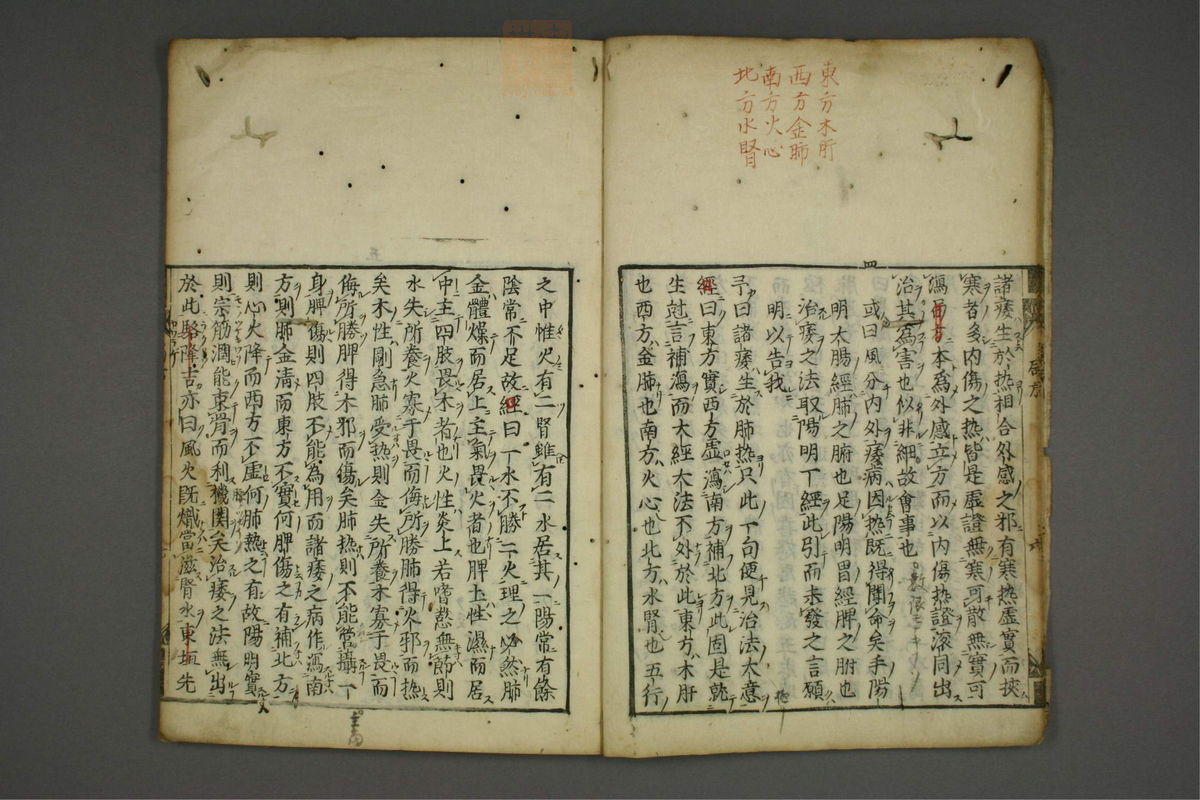 東方木肝
西方金肺
南方火心
北方水腎
四
諸痿生於熱相合外感之邪有寒熱虛實而挾
寒者多內傷之熱皆是虛證無寒可散無實可
瀉本為外感立方而以內傷熱證滚同出
治其為害也似非細故會事也
或曰風分內外痿病因熱既得聞命矣手陽
明大腸經肺之腑也足陽明胃經脾之腑也
治痿之法取陽明一經此引而未發之言願
明以告我
予曰諸痿生於肺熱只此一句便見治法大意
經曰東方實西方虛瀉南方補北方此固是就
生尅言補瀉而大經大法不外於此東方木肝
也西方金肺也南方火心也北方水腎也五行
之中惟火有二腎雖有二水居其一陽常有餘
陰常不足故經曰一水不勝二火理之必然肺
金體燥而居上主氣畏火者也脾土性濕而居
中主四肢畏木者也火性炎上若嗜慾無節則
水失所養火寡于畏而侮所勝肺得火邪而熱
矣木性剛急肺受熱則金失所養木寡于畏而
侮所勝脾得木邪而傷矣肺熱則不能管攝一
身脾傷則四肢不能為用而諸痿之病作瀉南
方則肺金清而東方不實何脾傷之有補北方
則心火降而西方不虛何肺熱之有故陽明實
則宗筋潤能束骨而利機関矣治痿之法無出
於此駱隆吉亦曰風火既熾當滋腎水東垣先